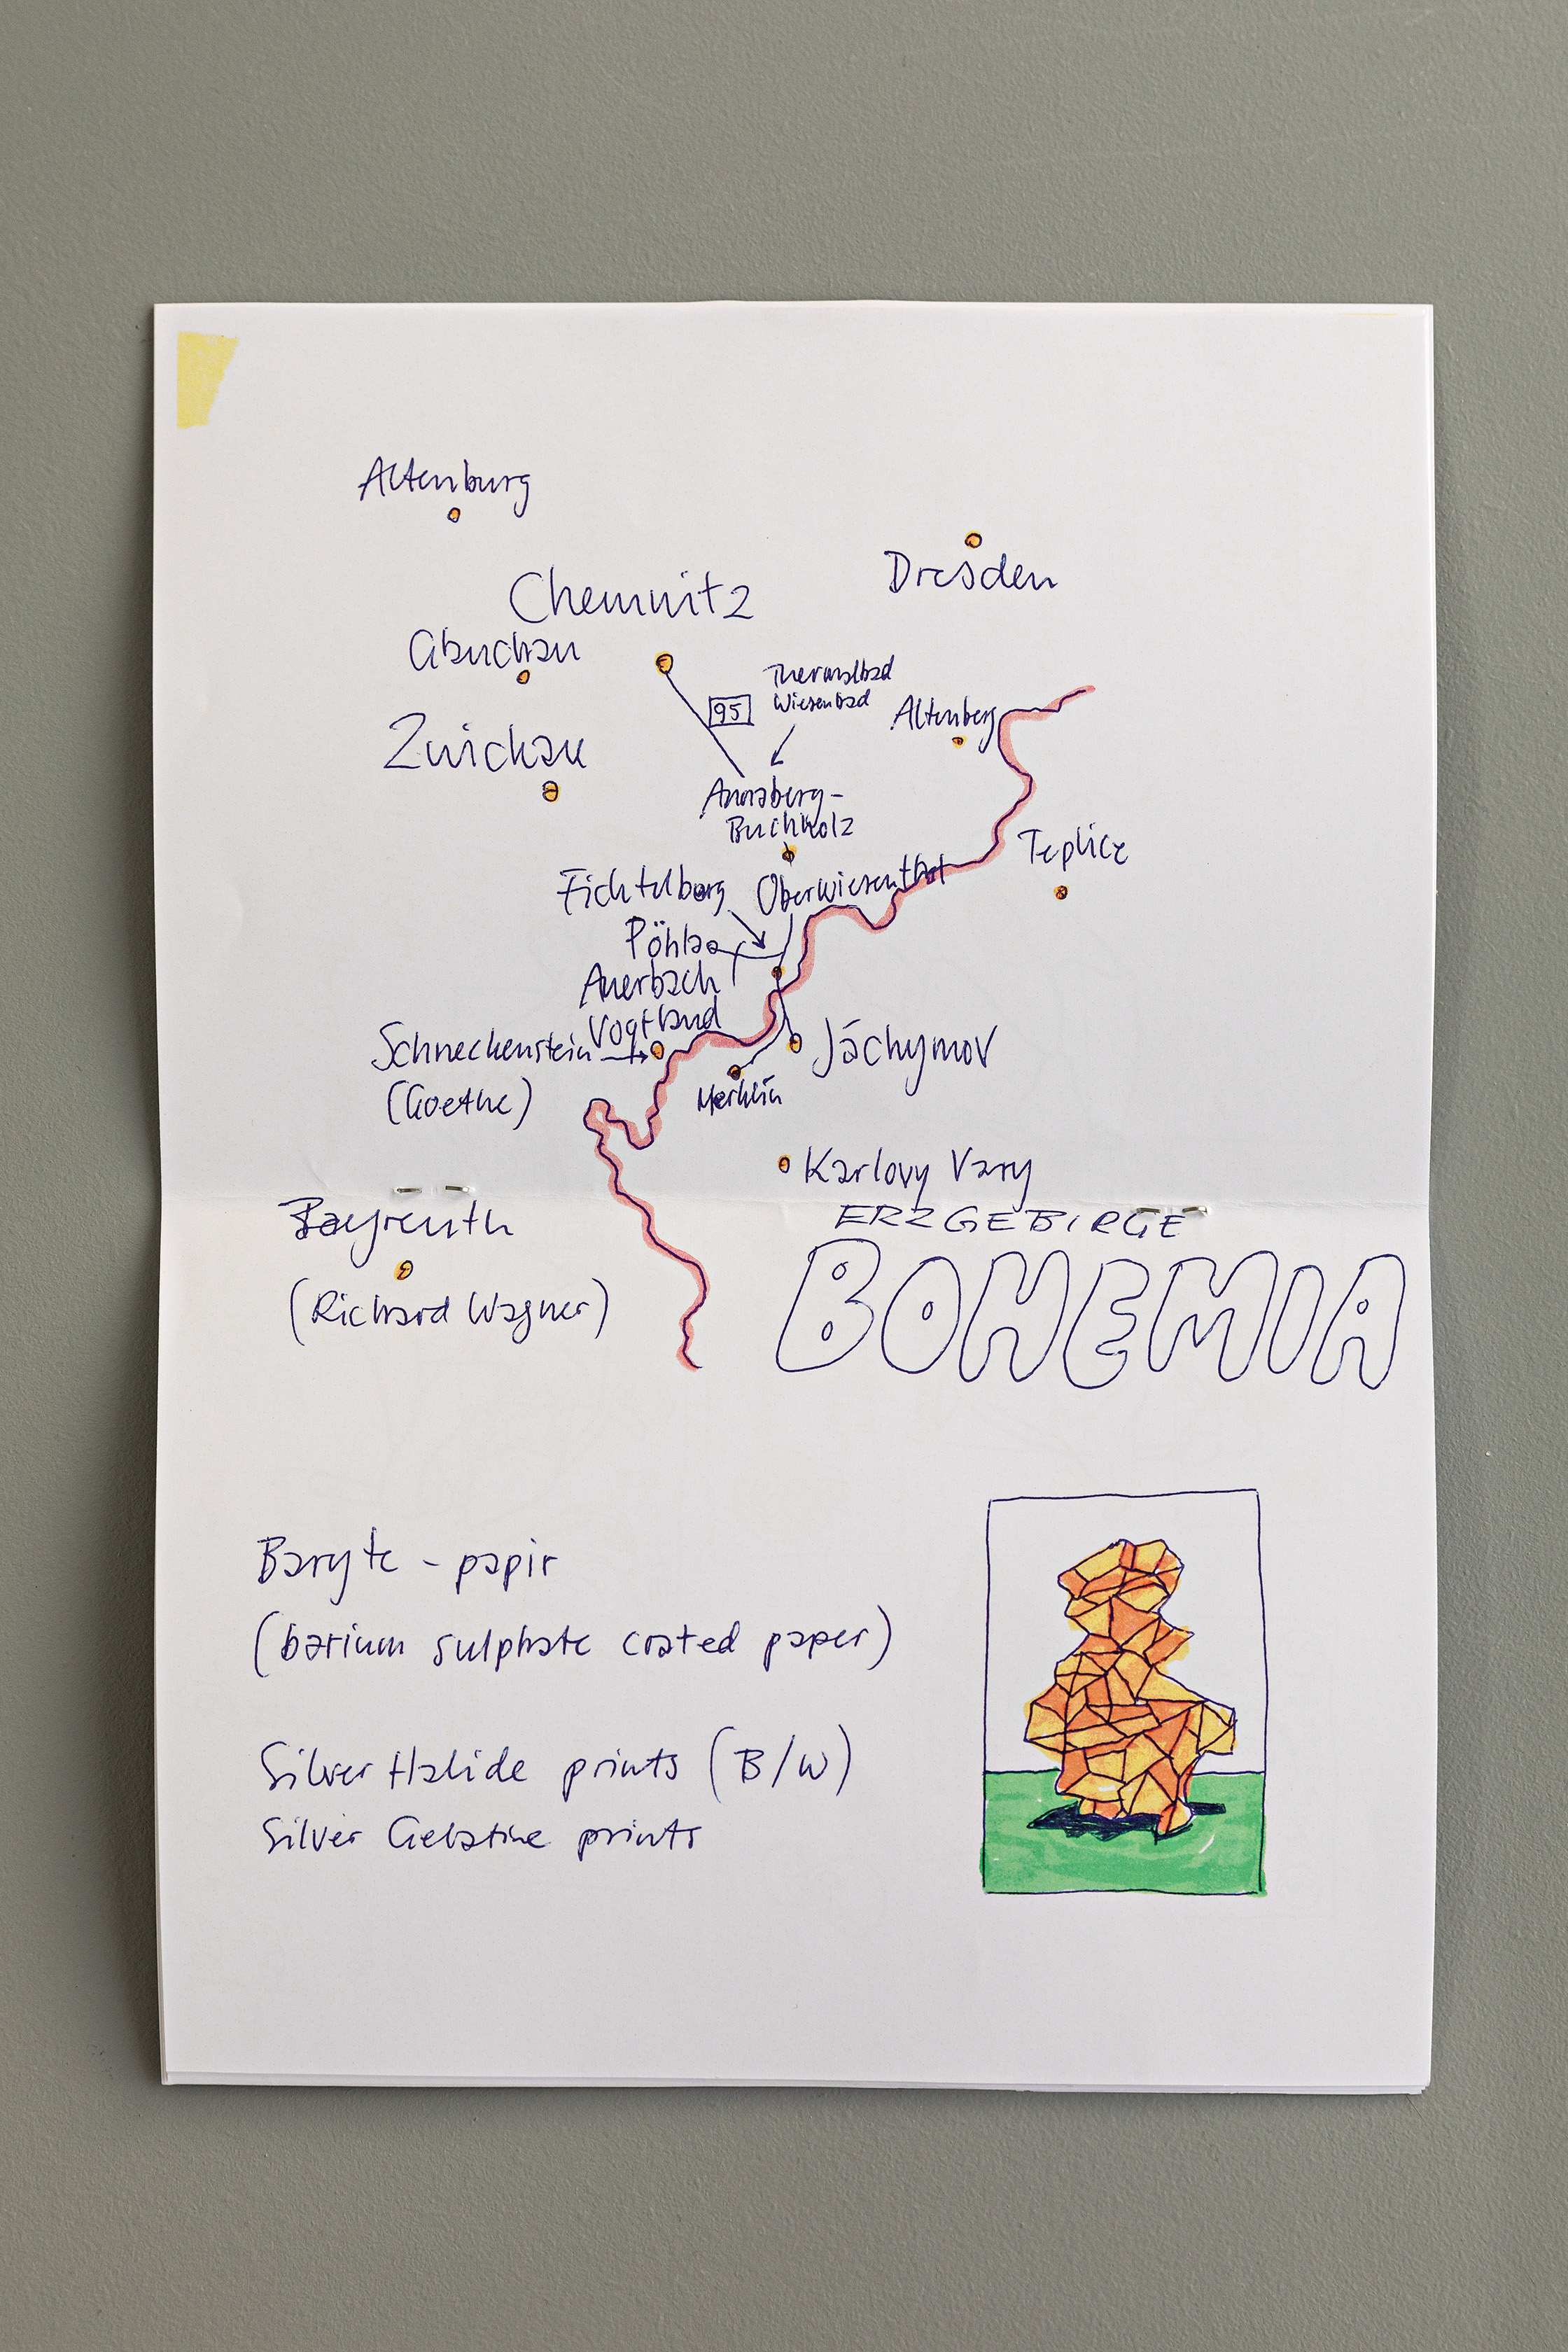 Altenburg
Dresden
Chemnitz
Glauchau
Thermalbad
Wiesenbad
95
Altenberg
Zwickau
Annaberg-
Buchholz
Teplice
Fichtelberg
Oberwiesenthal
Pöhla
Auerbach
Vogtland
Schneckenstein
(Goethe)
Jáchymov
Merklín
Karlovy Vary
ERZGEBIRGE
BOHEMIA
Bayreuth
(Richard Wagner)
Baryte - papir
(barium sulphate coated paper)
Silver Halide prints (B/W)
Silver Gelatine prints